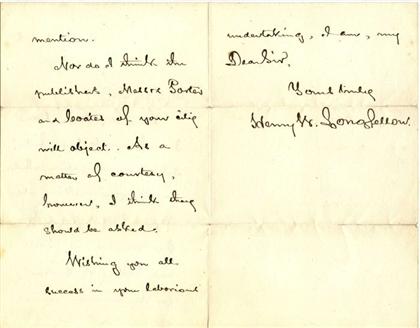 mention.
Nor do I think the
publishers, Messrs Porter
and Coates of your city
will object. As a
matter of courtesy,
however, I think they
should be asked.
Wishing you all
success in your laborious
undertaking, I am, my
Dear Sir,
Yours truly
Henry W. Longfellow.